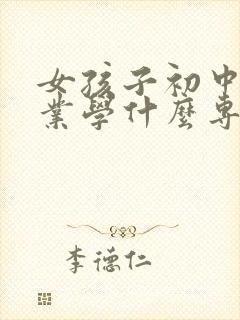 女孩子初中
業學什麼專
李德仁